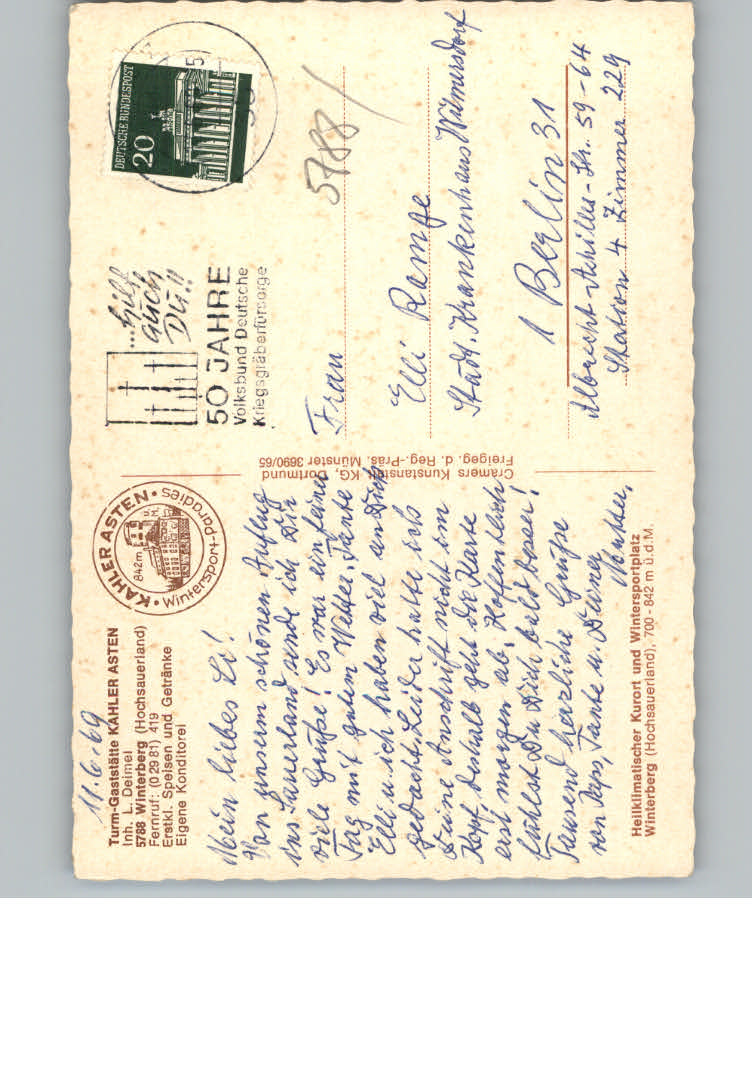 11.6.69
Turm-Gaststätte KAHLER ASTEN
Inh. L. Deimel
5788 Winterberg (Hochsauerland)
Fernruf: (0 29 81) 419
Erstkl. Speisen und Getränke
Eigene Konditorei
• KAHLER ASTEN •
842 m
Wintersport-Paradies
Mein liebes Li!
Von unserm schönen Ausflug
ins Sauerland sende ich Dir
viele Grüße! Es war ein feiner
Tag mit gutem Wetter. Tante
Elli u. ich haben viel an Dich
gedacht. Leider hatte ich
Deine Anschrift nicht im
Kopf, deshalb geht die Karte
erst morgen ab. Hoffentlich
fühlst Du Dich bald besser!
Tausend herzliche Grüße
von Papa, Tante u. Deiner
Mutter.
Heilklimatischer Kurort und Wintersportplatz
Winterberg (Hochsauerland), 700 - 842 m ü.d.M.
Cramers Kunstanstalt KG, Dortmund
Freigeg. d. Reg.-Präs. Münster 3690/65
DEUTSCHE BUNDESPOST
20
...hilf
auch
DU!!
50 JAHRE
Volksbund Deutsche
Kriegsgräberfürsorge
5788/
Frau
Elli Rampe
Städt. Krankenhaus Wilmersdorf
1 Berlin 31
Albrecht-Achilles-Str. 59-64
Station 4 Zimmer 229